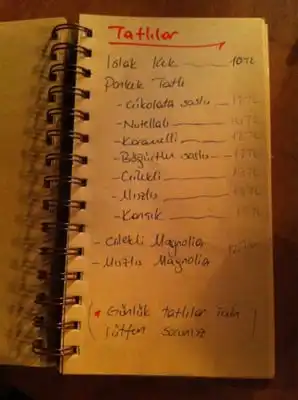 Tatlılar
Islak Kek 10 TL
Pankek Tatlı
- Çikolata soslu
- Nutellalı
- Karamelli
- Böğürtlen soslu
- Çilekli
- Muzlu
- Karışık
- Çilekli Magnolia
- Muzlu Magnolia
( * Günlük tatlılar için
lütfen sorunuz )